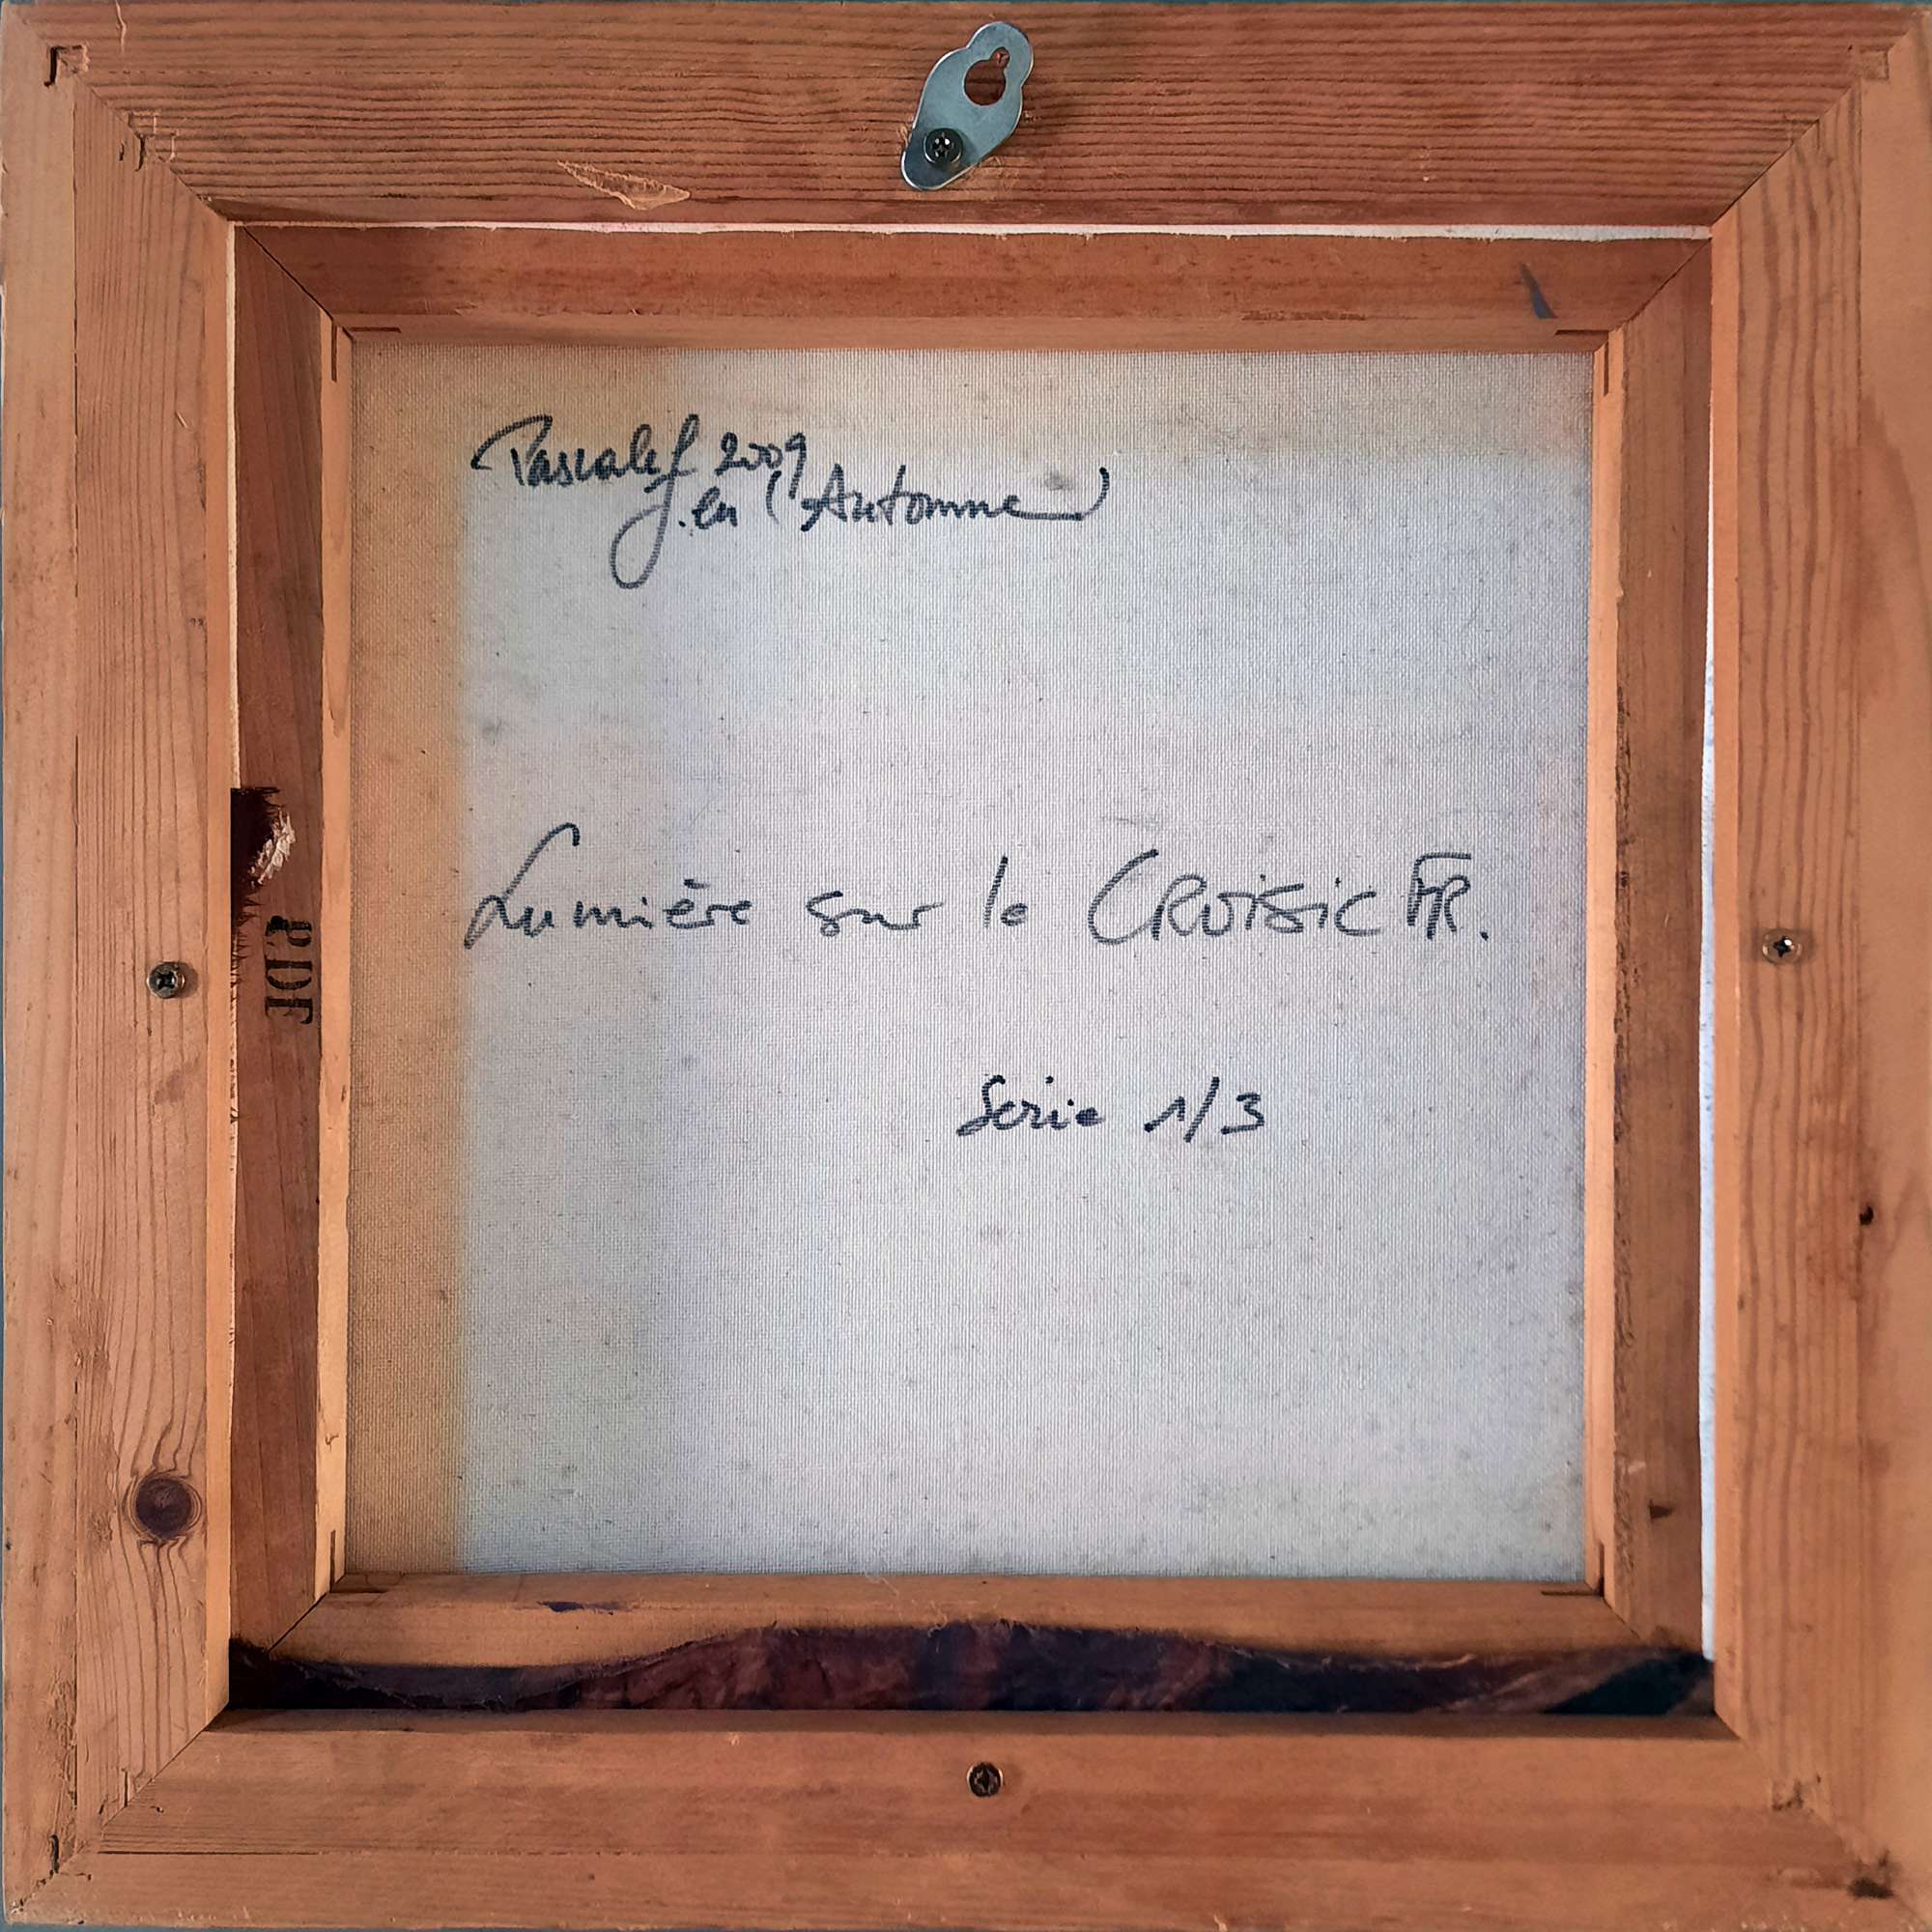 Pascale f 2009
en l'Automne
Lumière sur le CROISIC FR.
Serie 1/3
P.DE